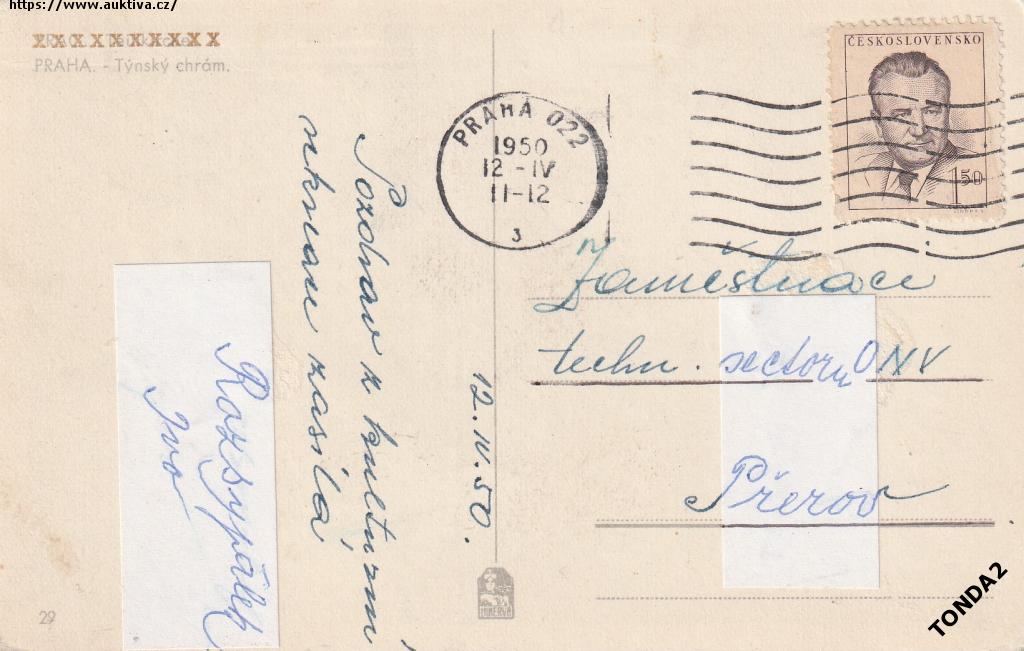 https://www.auktiva.cz/
PRAHA. - Týnský chrám.
PRAHA 022
1950
12 - IV
11-12
3
ČESKOSLOVENSKO
1 50
Pozdrav z kulturní
zasílá
Rozsypálek
Ivo
12.IV.50.
Zaměstnace
techn. sectoru ONV
Přerov
MINERVA
29
TONDA2